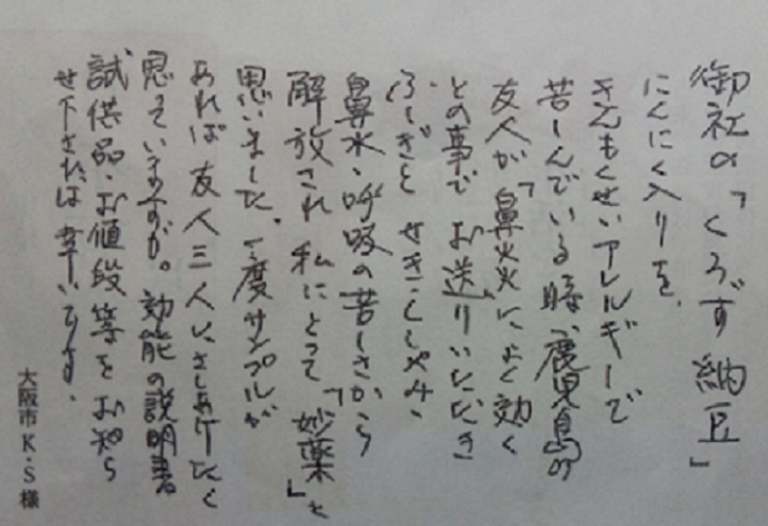 御社の「くろず納豆」
にんにく入りを、
きんもくせいアレルギーで
苦しんでいる時、鹿児島の
友人が「鼻炎によく効く
との事でお送りいただき
ふしぎとせき・くしゃみ、
鼻水・呼吸の苦しさから
解放され私にとって「妙薬」と
思いました。一度サンプルが
あれば友人三人にさしあげたく
思っていますが。効能の説明書
試供品・お値段等をお知ら
せ下されば幸いです。
大阪市 K・S 様